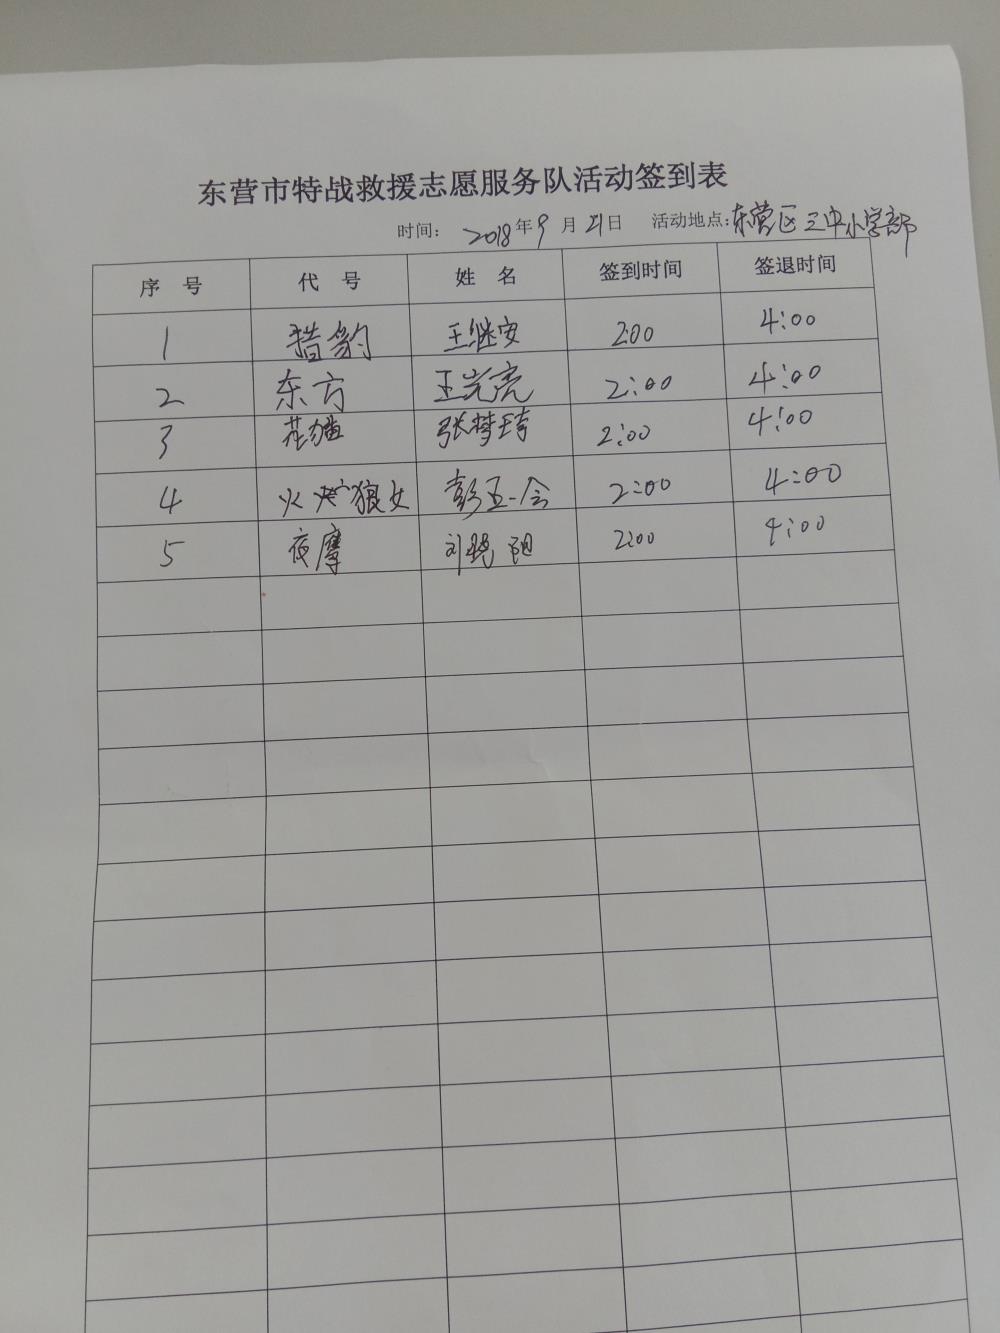 东营市特战救援志愿服务队活动签到表
时间: 2018年9月21日 活动地点:东营区三中小学部
序号 代号 姓名 签到时间 签退时间
1 猎豹 王继安 2:00 4:00
2 东方 王光亮 2:00 4:00
3 花猫 张梦琦 2:00 4:00
4 火 狼女 彭 会 2:00 4:00
5 夜摩 刘晓阳 2:00 4:00